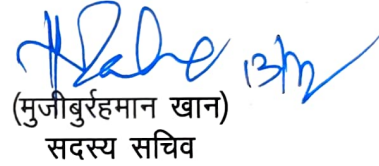 13/12
(मुजीबुर्रहमान खान)
सदस्य सचिव